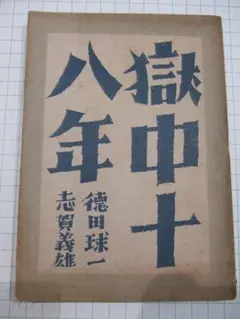 獄中十
八年
德田球一
志賀義雄